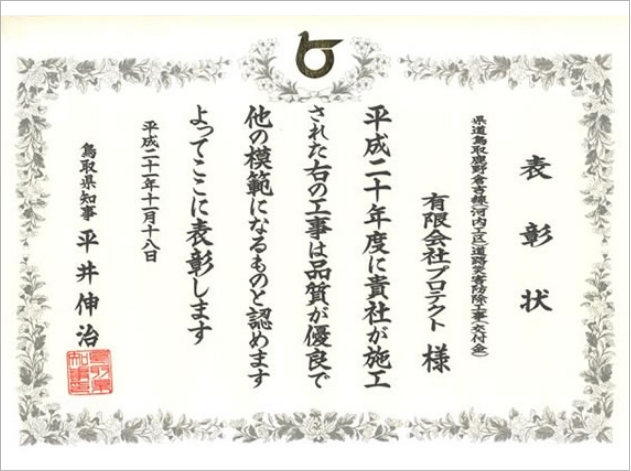 表彰状
県道鳥取鹿野倉吉線(河内工区)道路災害防除工事(交付金)
有限会社プロテクト 様
平成二十年度に貴社が施工
された右の工事は品質が優良で
他の模範になるものと認めます
よってここに表彰します
平成二十一年十一月十八日
鳥取県知事 平井伸治